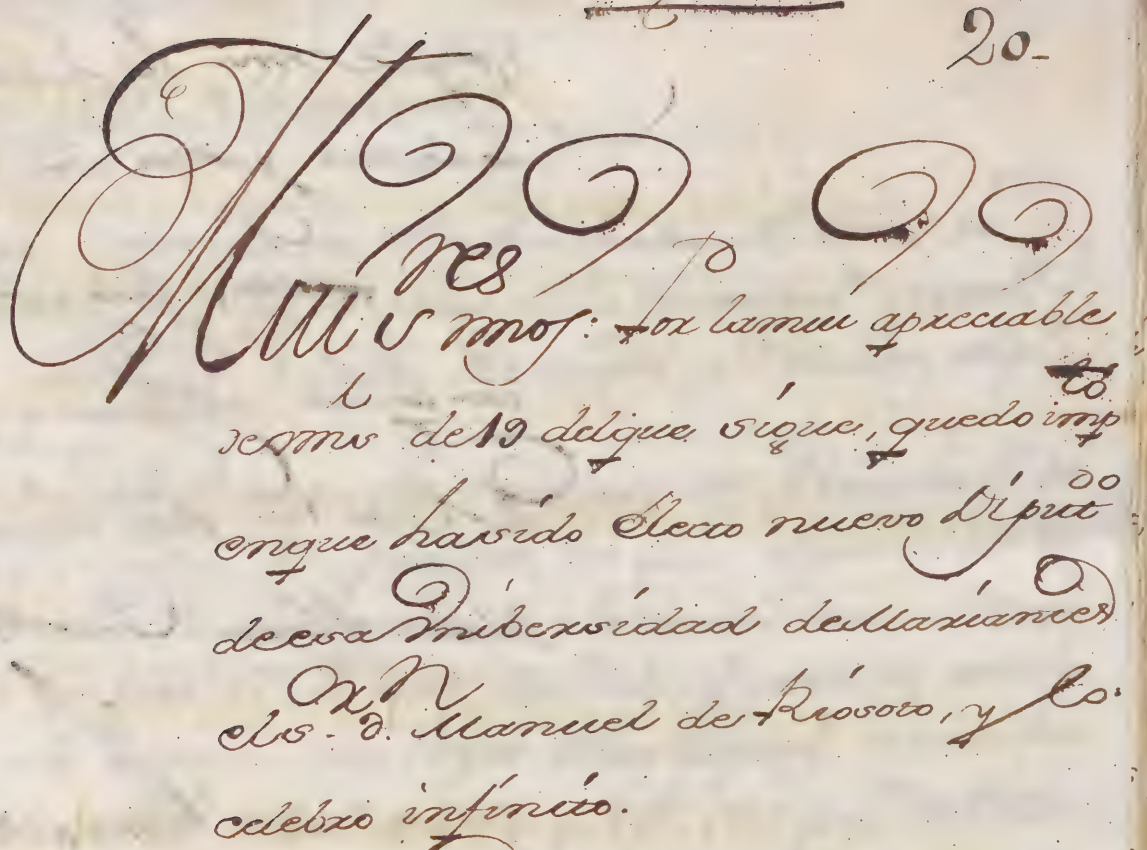 20-
Muis res mos: Por lamui apreciable
de vms de 19 delque sigue, quedo imp to
enque hasido Electo nuevo Diput do
deesa Unibersidad deMareantes
el s. or d. n Manuel de Riosoto, y lo
celebro infinito.